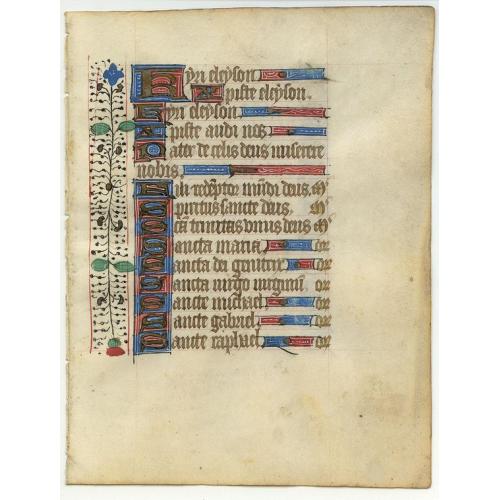 Kyri eleyson
Xpiste eleyson.
Kyri eleyson
Xpiste audi nos
Pater de celis deus miserere
nobis.
Fili redemptor mundi deus. Mi
Spiritus sancte deus. Mi
Sca trinitas unus deus Mi
Sancta maria or
Sancta dei genitrix or
Sancta virgo virginu or
Sancte michael or
Sancte gabriel or
Sancte raphael or